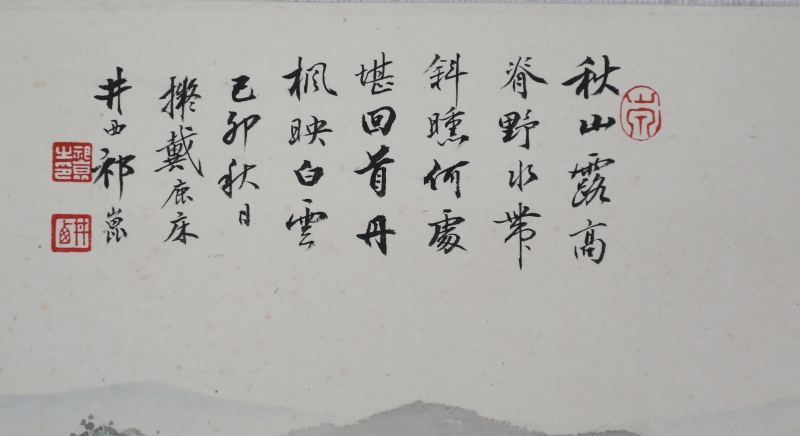 秋山露高
脊野水帶
斜曛何處
堪回首丹
楓映白雲
己卯秋日
擬戴鹿床
井西祁崑